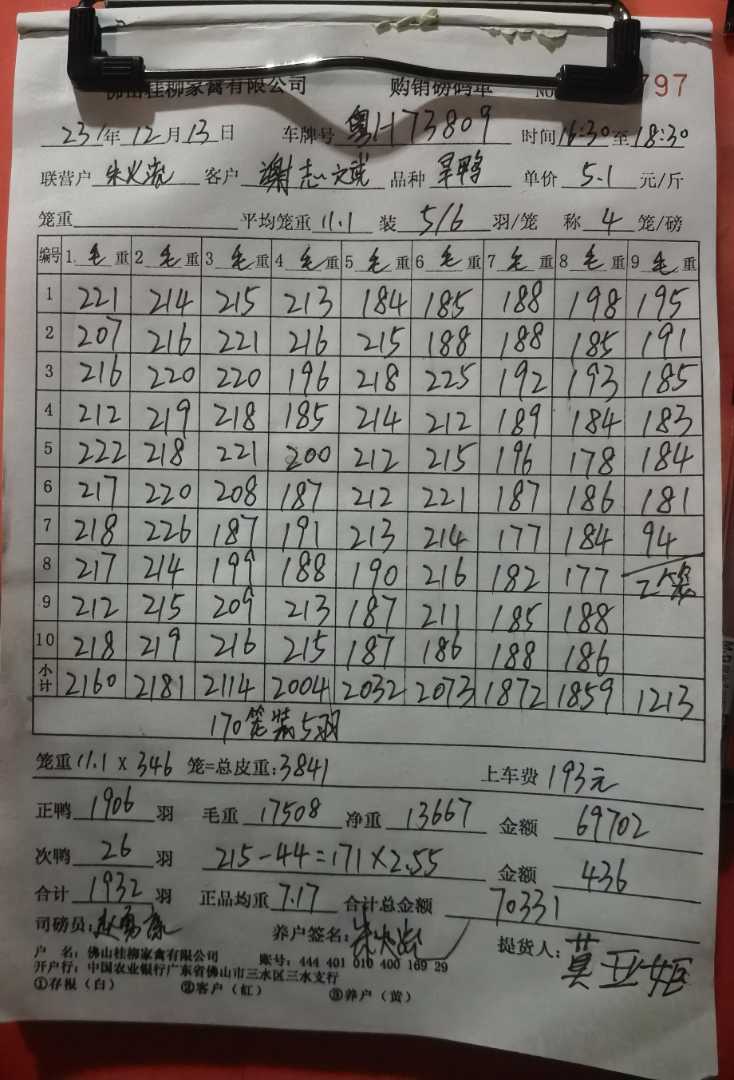 佛山桂柳家禽有限公司 购销磅码单 NO 797
231年12月13日 车牌号 粤H73809 时间16:30至18:30
联营户 客户 谢志斌 品种 旱鸭 单价 5.1 元/斤
笼重 平均笼重 11.1 装 5/6 羽/笼 称 4 笼/磅
编号 1 毛 重 2 毛 重 3 毛 重 4 毛 重 5 毛 重 6 毛 重 7 毛 重 8 毛 重 9 毛 重
1 221 214 215 213 184 185 188 198 195
2 207 216 221 216 215 188 188 185 191
3 216 220 220 196 218 225 192 193 185
4 212 219 218 185 214 212 189 184 183
5 222 218 221 200 212 215 196 178 184
6 217 220 208 187 212 221 187 186 181
7 218 226 187 191 213 214 177 184 94
8 217 214 199 188 190 216 182 177 2笼
9 212 215 209 213 187 211 185 188
10 218 219 216 215 187 186 188 186
小计 2160 2181 2114 2004 2032 2073 1872 1859 1213
170笼装5羽
笼重 11.1 x 346 笼=总皮重:3841 上车费 193元
正鸭 1906 羽 毛重 17508 净重 13667 金额 69702
次鸭 26 羽 215-44=171×2.55 金额 436
合计 1932 羽 正品均重 7.17 合计总金额 70331
司磅员: 养户签名: 提货人:
户 名:佛山桂柳家禽有限公司 账号:444 401 010 400 169 29
开户行:中国农业银行广东省佛山市三水区三水支行
①存根(白) ②客户(红) ③养户(黄)